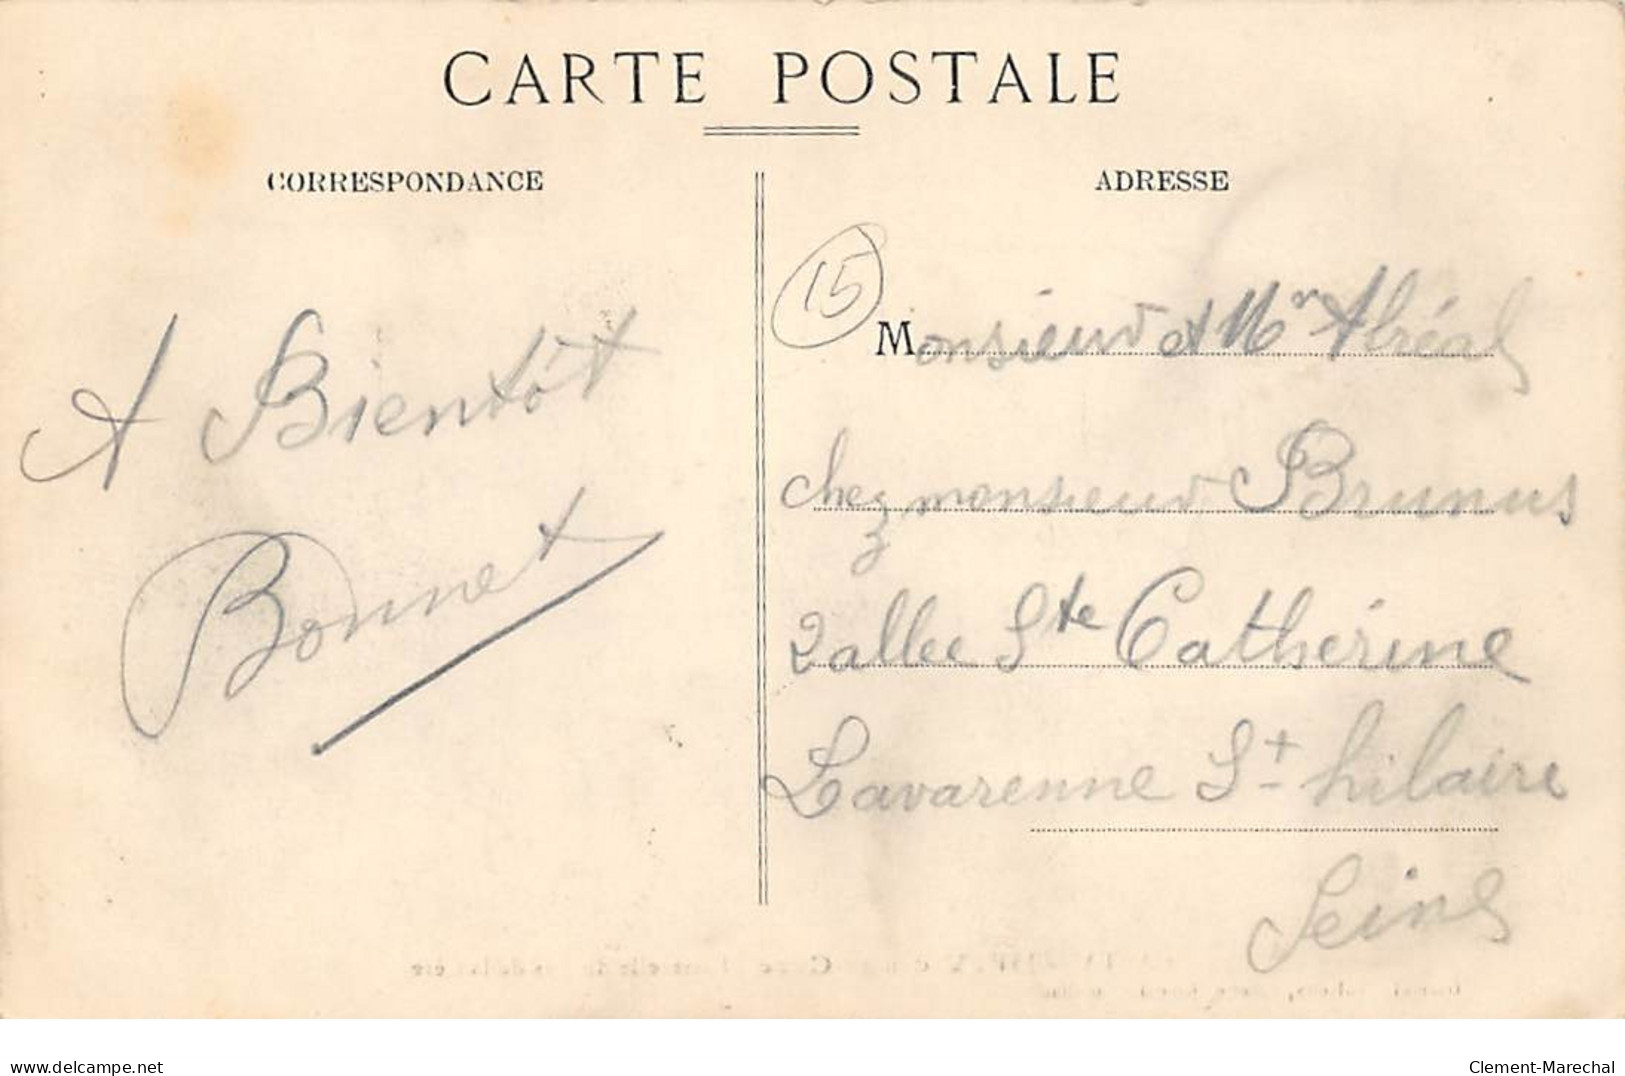 CARTE POSTALE
CORRESPONDANCE
A Bientôt
Bonnet
ADRESSE
15
Monsieur et Mr
chez monsieur Brunus
2 allee Ste Catherine
Lavarenne St hilaire
Seine
www.delcampe.net
Clement-Marechal